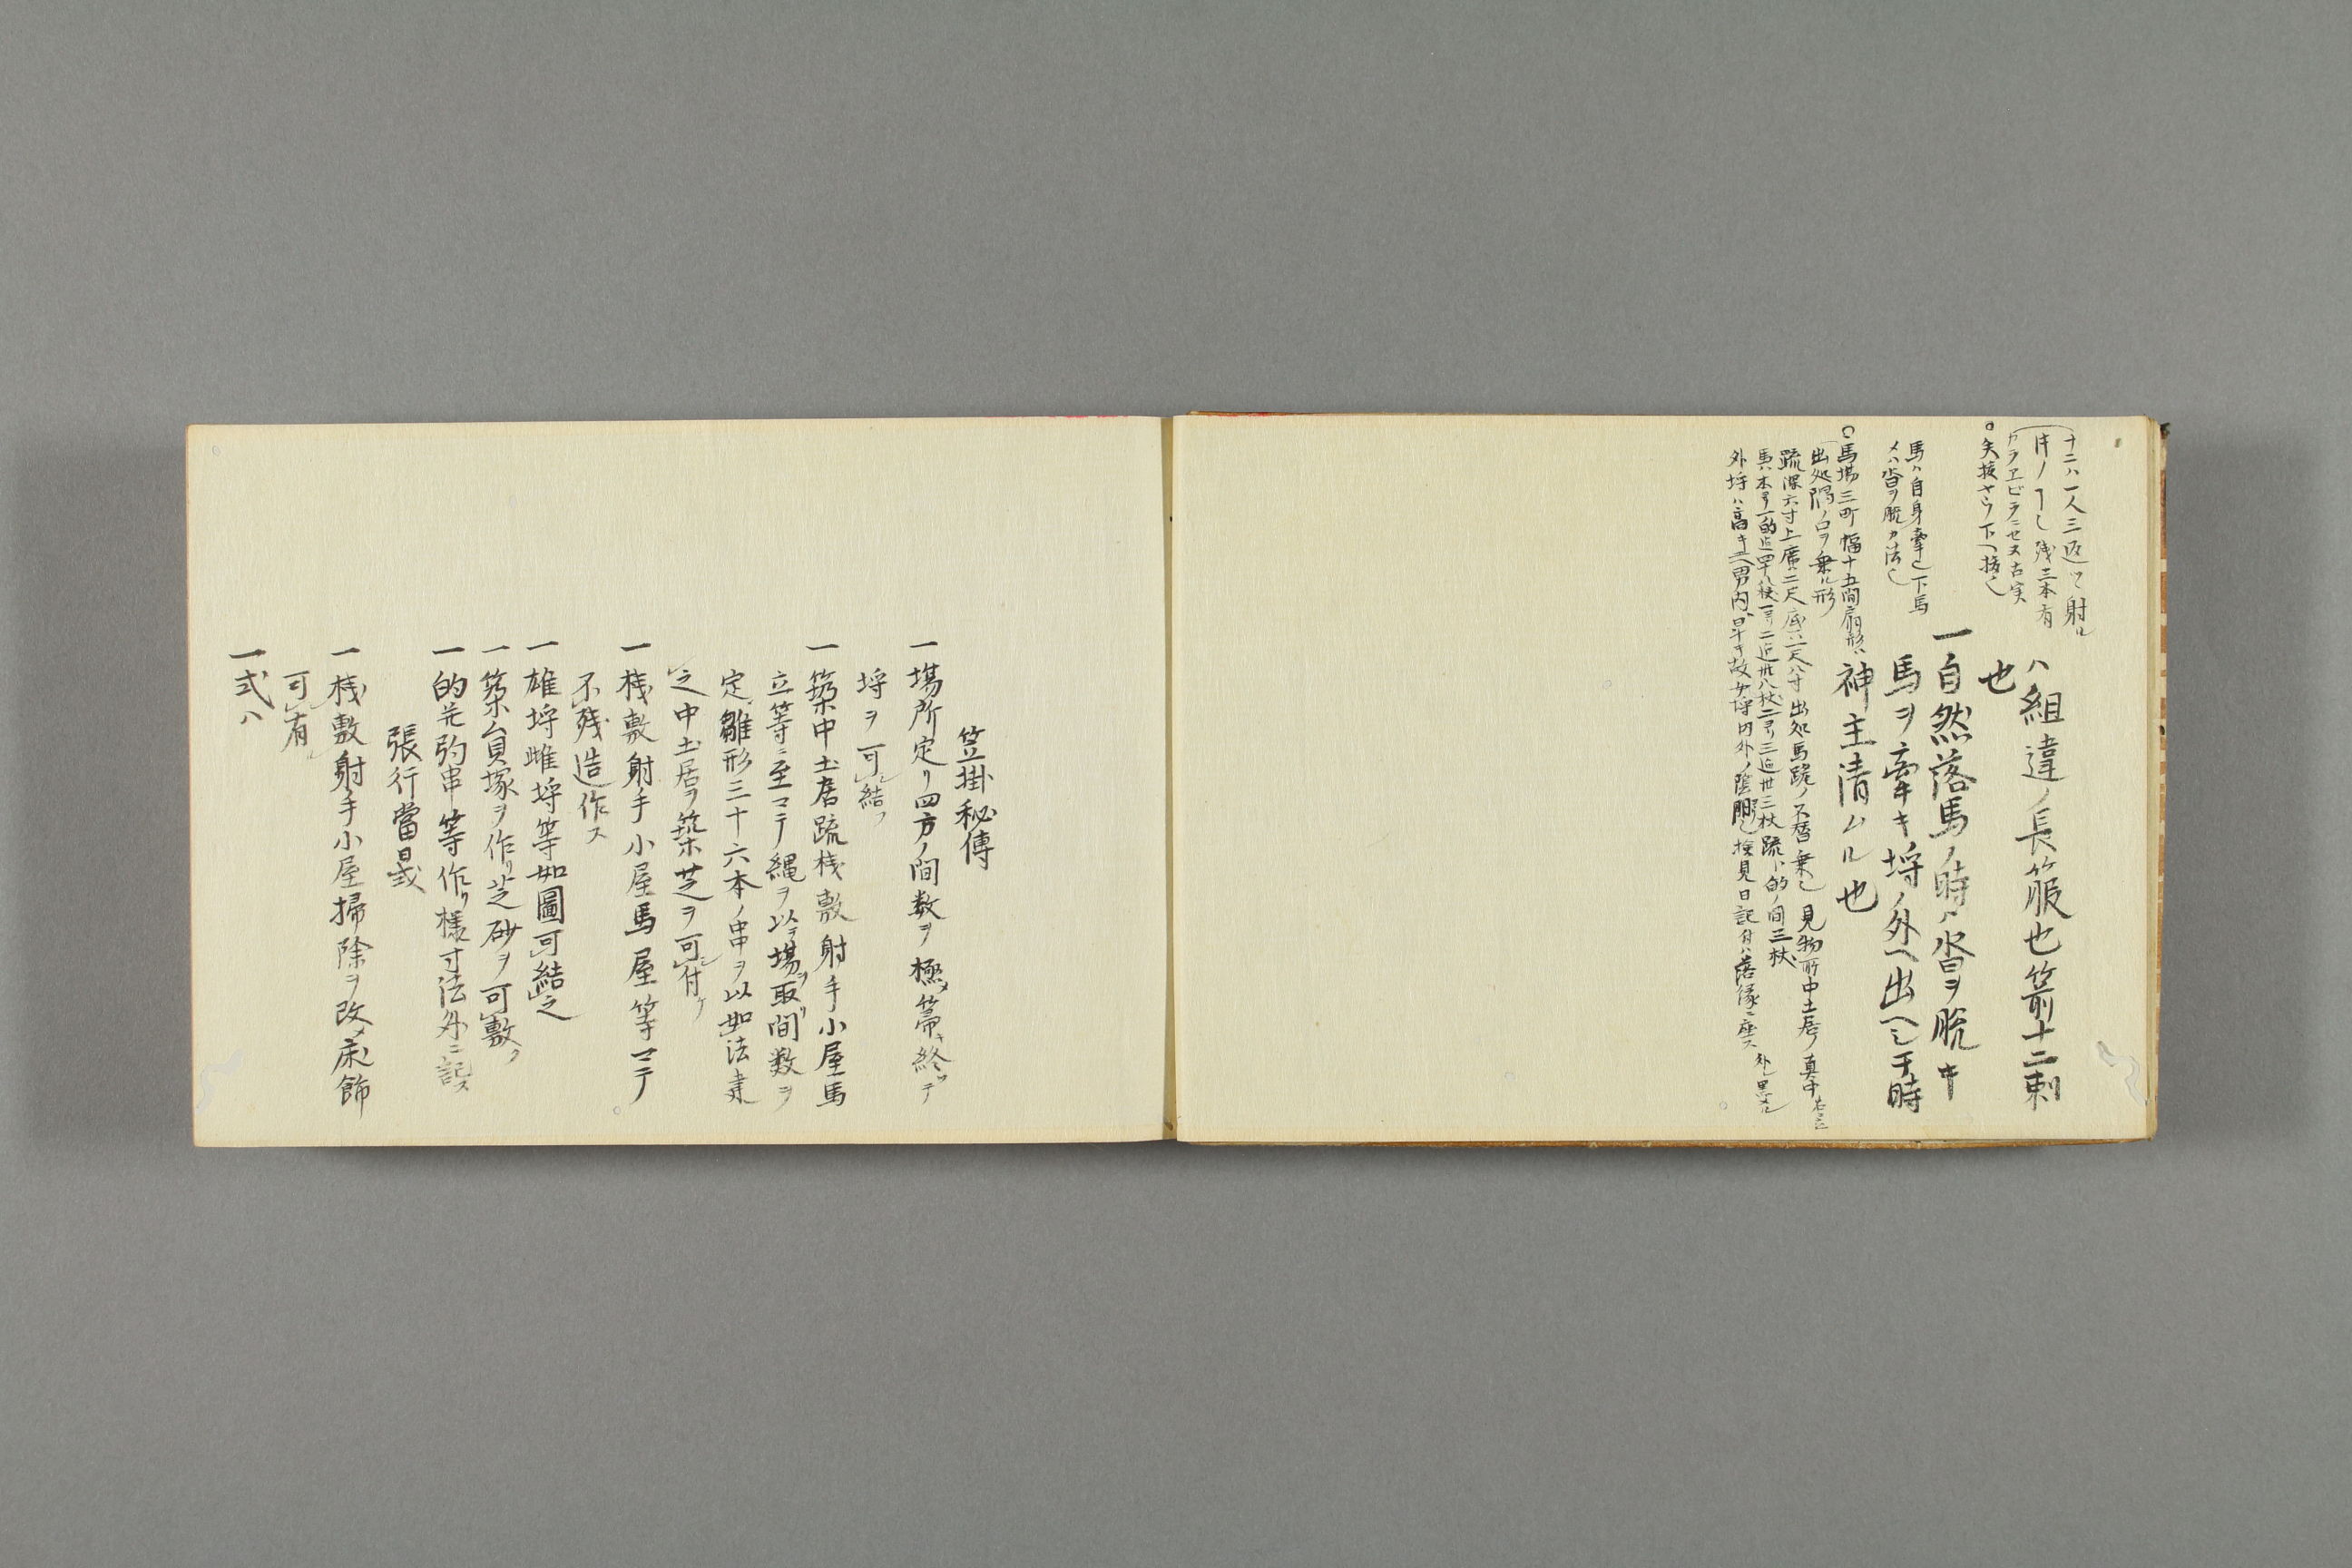 十二ハ一人三返ツヽ射ル
残三本有
カラヱビラニセヌ古実
矢抜ヤウ下ヘ抜也
ハ組違ノ長箙也箭十二刺
也
馬ハ自身牽也下馬
メハ沓ヲ脱カ法也
一自然落馬ノ時ハ沓ヲ脱キ
馬ヲ牽キ埒ノ外ヘ出ヘシ于時
神主清ムル也
○馬場三町幅十五間扇形ハ
出処隅ノ口ヲ乗ル形
疏深六寸上廣二尺底ハ一尺八寸出処馬跪ノ不踏乗也見物所中土居ノ真中
三返卅三杖疏ト的ノ間三杖
外埒ハ高キ故男内ハ早キ故女埒内外ノ陰陽也検見日記付ハ落縁ニ座ス
笠掛秘傳
一場所定リ四方ノ間数ヲ極メ箒キ終ツテ
埒ヲ可結フ
一築中土居疏桟敷射手小屋馬
立等ニ至マテ縄ヲ以テ場ヲ取リ間数ヲ
定雛形三十六本ノ串ヲ以如法建
之中土居ヲ築芝ヲ可付ケ
一桟敷射手小屋馬屋等マテ
不残造作ス
一雄埒雌埒等如圖可結之
一築貟塚ヲ作リ芝砂ヲ可敷ク
一的並弣串等作リ様寸法外ニ記ス
張行當日式
一桟敷射手小屋掃除ヲ改メ床飾
可有ル
一式ハ